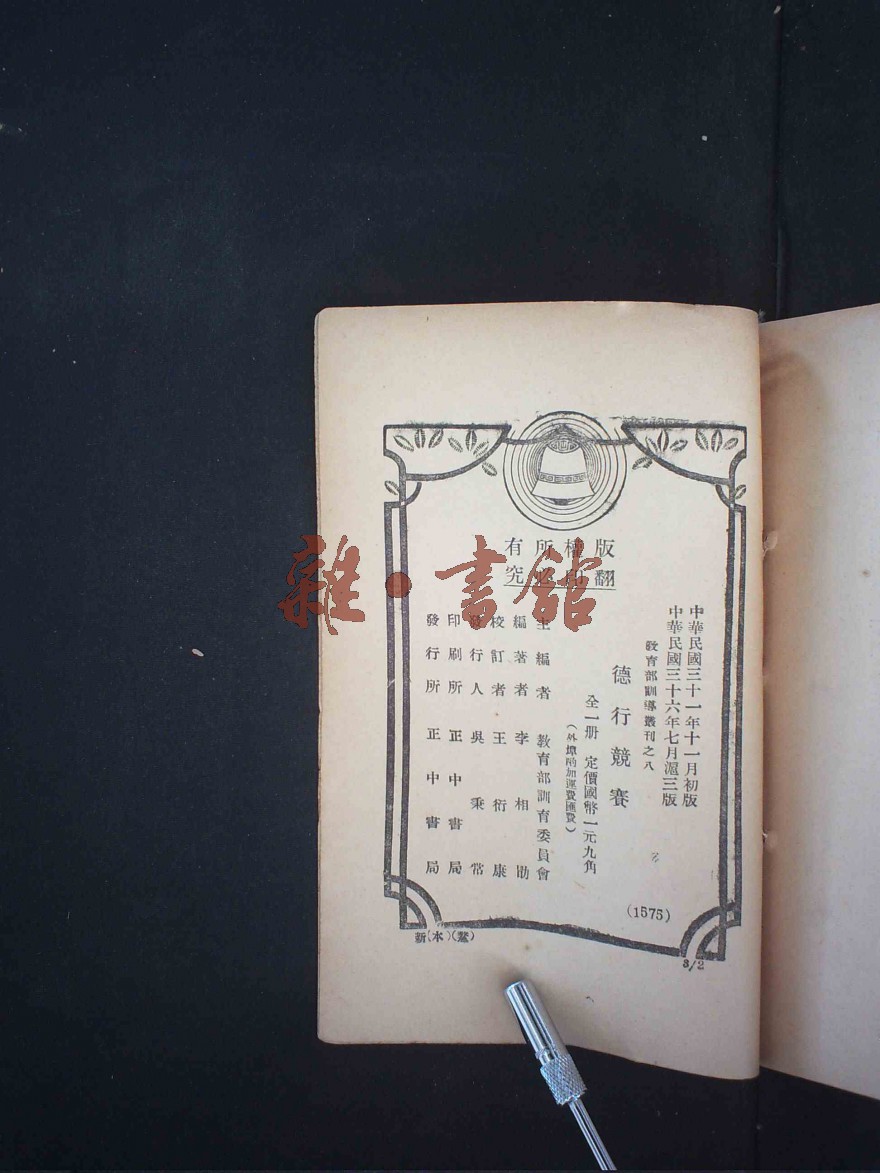 雜·書舘
版權所有
翻印必究
中華民國三十一年十一月初版
中華民國三十六年七月滬三版
教育部訓導叢刊之八
德行競賽
全一册 定價國幣一元九角
(外埠酌加運費匯費)
主編者 教育部訓育委員會
編著者 李相勖
校訂者 王衍康
發行人 吳秉常
印刷所 正中書局
發行所 正中書局
(1575)
新(本)
3/2